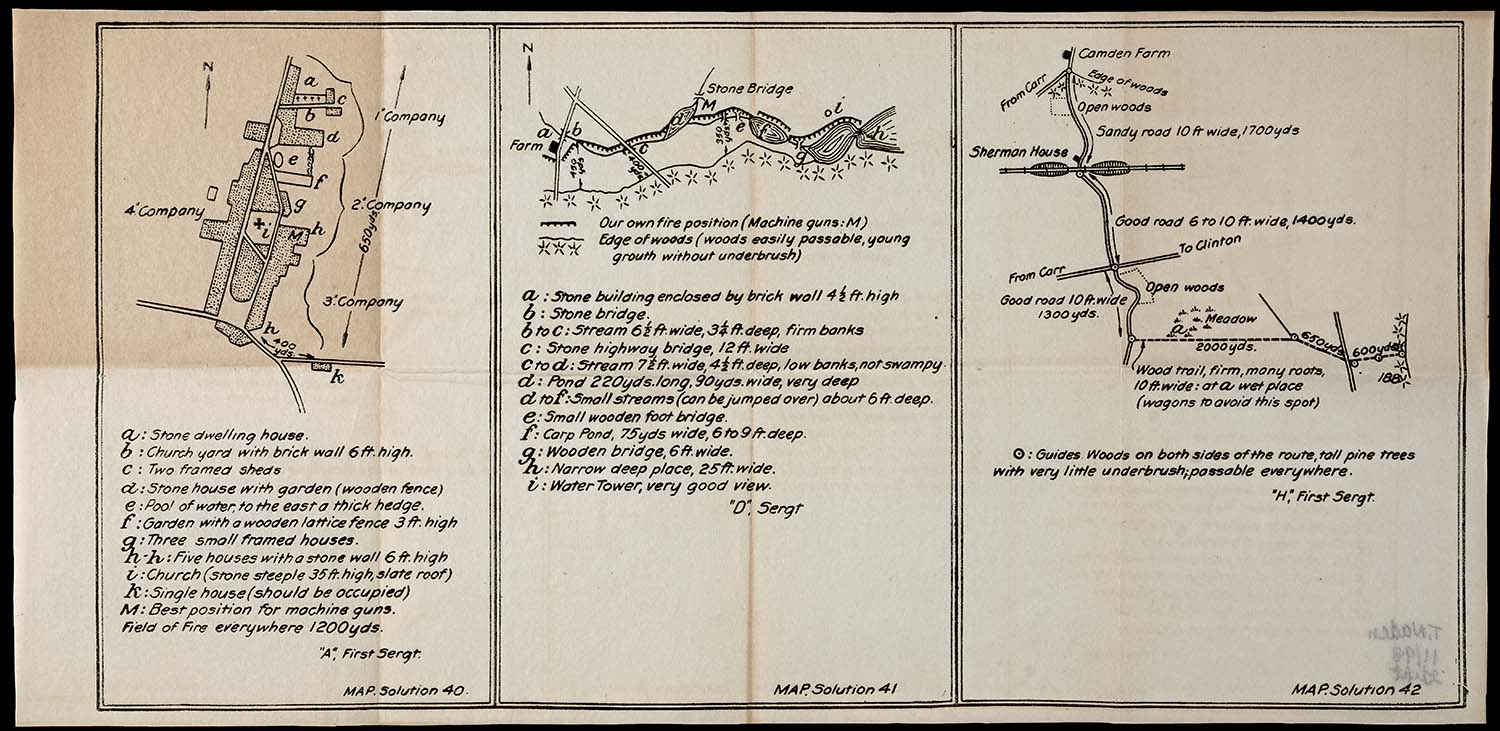 N
a
c
b
1º Company
d
e
f
4º Company
g
2º Company
650yds.
i
M
h
3º Company
h
400
yds.
k
a: Stone dwelling house.
b: Church yard with brick wall 6ft. high.
c: Two framed sheds
d: Stone house with garden (wooden fence)
e: Pool of water, to the east a thick hedge.
f: Garden with a wooden lattice fence 3 ft. high
g: Three small framed houses.
h-h: Five houses with a stone wall 6 ft. high
i: Church (stone steeple 35 ft. high, slate roof)
k: Single house (should be occupied)
M: Best position for machine guns.
Field of Fire everywhere 1200yds.
"A", First Sergt.
MAP. Solution 40.
N
Stone Bridge
M
a
b
Farm
c
d
e
f
g
i
h
150
yds
400
yds
350
yds
Our own fire position (Machine guns: M)
Edge of woods (woods easily passable, young
grouth without underbrush)
a: Stone building enclosed by brick wall 4½ ft. high
b: Stone bridge.
b to c: Stream 6½ ft. wide, 3¼ ft. deep, firm banks
c: Stone highway bridge, 12 ft. wide
c to d: Stream 7½ ft. wide, 4½ ft. deep, low banks, not swampy.
d: Pond 220yds. long, 90yds. wide, very deep
d to f: Small streams (can be jumped over) about 6 ft. deep.
e: Small wooden foot bridge.
f: Carp Pond, 75yds wide, 6 to 9 ft. deep.
g: Wooden bridge, 6 ft. wide.
h: Narrow deep place, 25 ft. wide.
i: Water Tower, very good view.
"D", Sergt
MAP. Solution 41
Camden Farm
From Carr
Edge of woods
Open woods
Sandy road 10 ft wide, 1700yds
Sherman House
Good road 6 to 10 ft. wide, 1400yds.
To Clinton
From Carr
Good road 10 ft. wide
1300yds.
Open woods
Meadow
a
2000yds.
650yds
600yds
188
Wood trail, firm, many roots,
10 ft. wide: at a wet place
(wagons to avoid this spot)
⊙: Guides. Woods on both sides of the route, tall pine trees
with very little underbrush; passable everywhere.
"H", First Sergt.
MAP. Solution 42
T. Naden